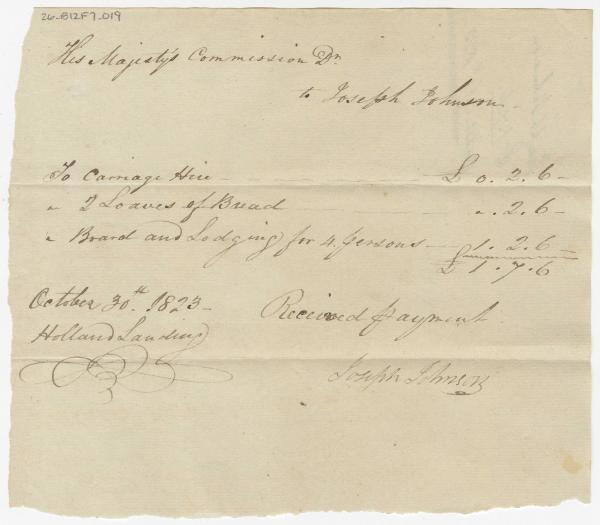 26-B12F7-019
His Majesty's Commission Dr
to Joseph Johnson
To Carriage Hire £ 0. 2. 6
" 2 Loaves of Bread ". 2. 6
" Board and Lodging for 4 persons 1. 2. 6
£ 1. 7. 6
October 30th. 1823
Holland Landing
Received Payment
Joseph Johnson